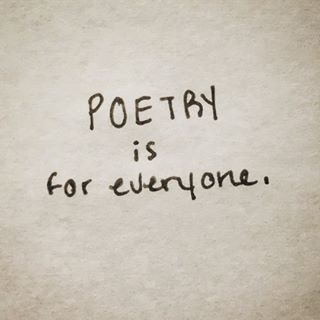 POETRY
is
for everyone.